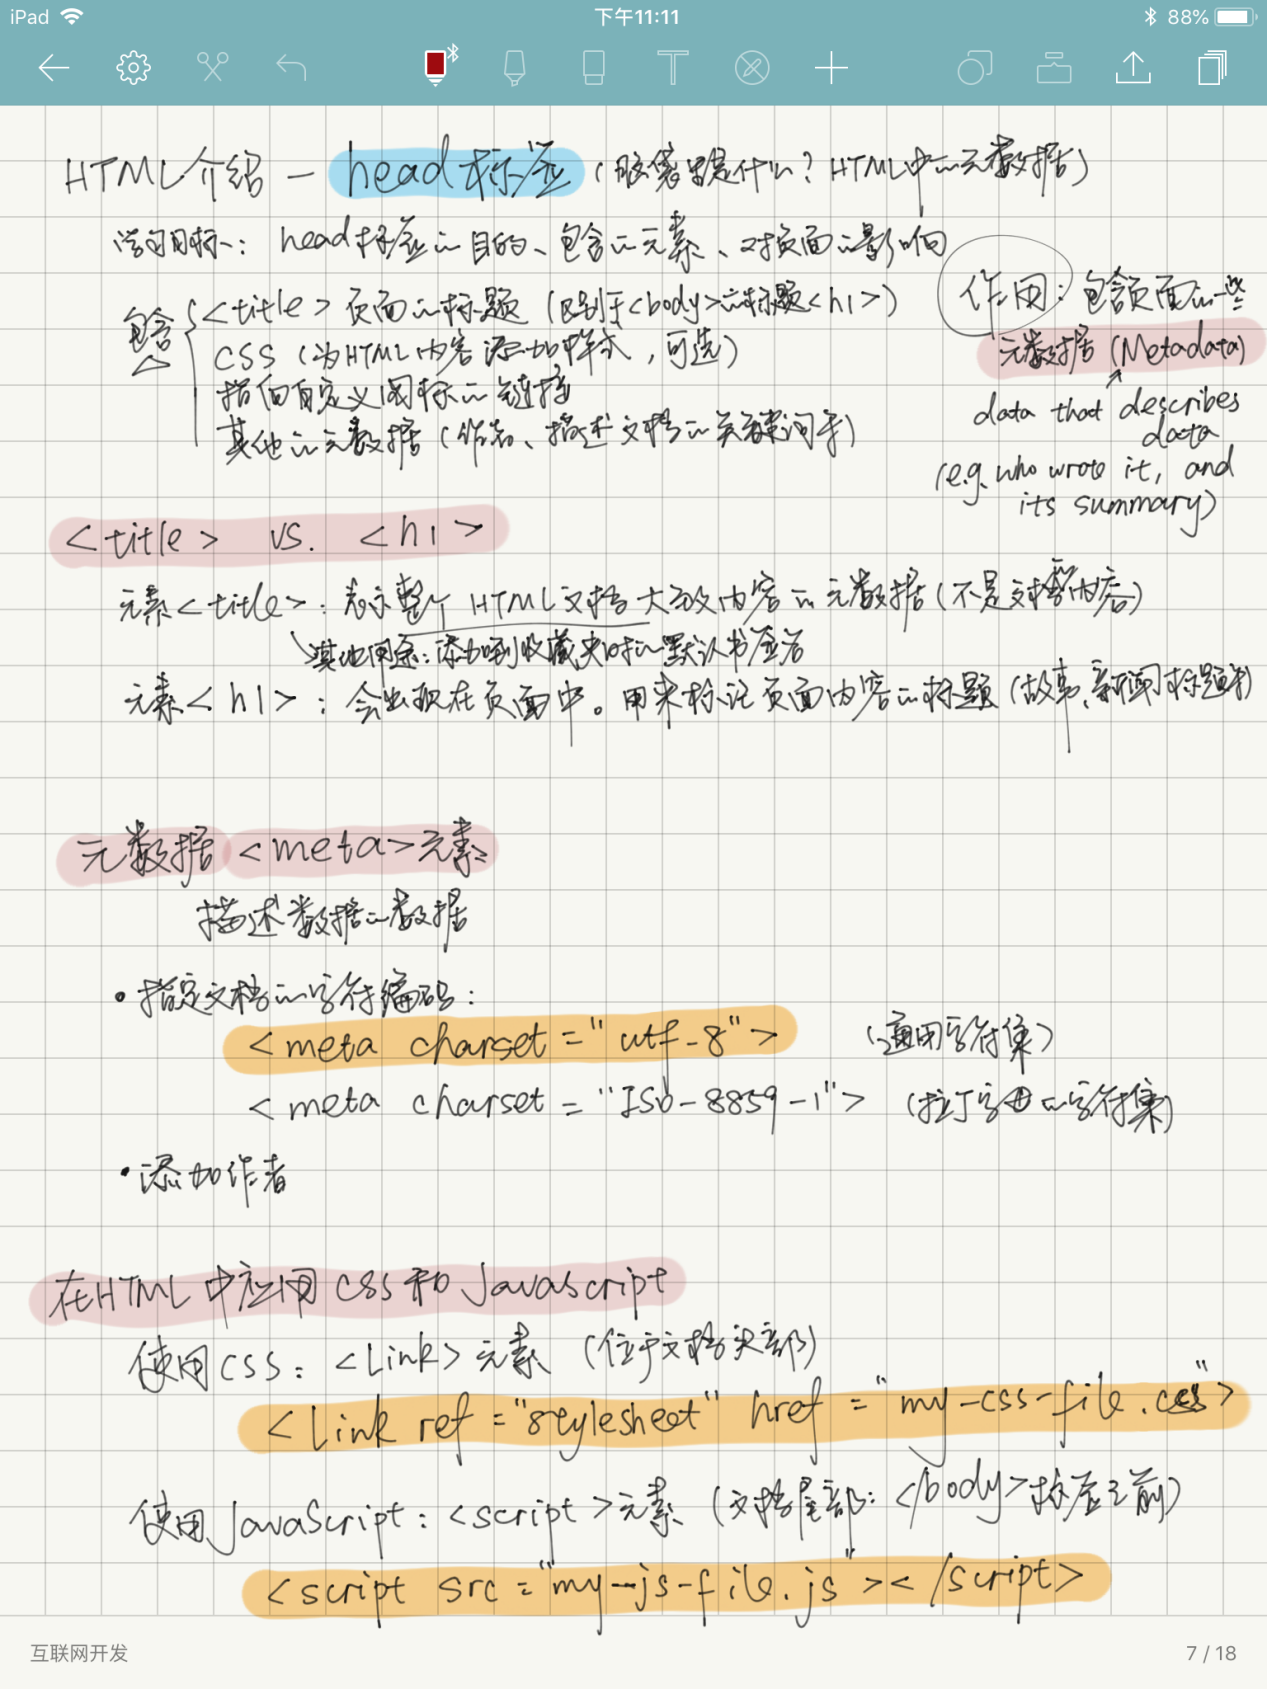 iPad 下午11:11 88%
HTML介绍 — head标签 (脑袋里是什么? HTML中的元数据)
学习目标: head标签的目的、包含的元素、对页面的影响
包含
<title> 页面的标题 (区别于<body>的标题<h1>)
CSS (为HTML内容添加样式, 可选)
指向自定义图标的链接
其他的元数据 (作者、描述文档的关键词等)
作用: 包含页面的一些
元数据 (Metadata)
data that describes
data
(e.g. who wrote it, and
its summary)
<title> vs. <h1>
元素<title>: 表示整个HTML文档大致内容的元数据 (不是文档内容)
其他用途: 添加到收藏夹时的默认书签名
元素<h1>: 会出现在页面中。用来标记页面内容的标题 (故事、新闻标题等)
元数据 <meta>元素
描述数据的数据
• 指定文档的字符编码:
<meta charset="utf-8"> (通用字符集)
<meta charset="ISO-8859-1"> (拉丁字母的字符集)
• 添加作者
在HTML中应用CSS和Javascript
使用CSS: <Link> 元素 (位于文档头部)
<Link ref="stylesheet" href="my-css-file.css">
使用JavaScript: <script>元素 (文档尾部: </body>标签之前)
<script src="my-js-file.js"></script>
互联网开发 7 / 18